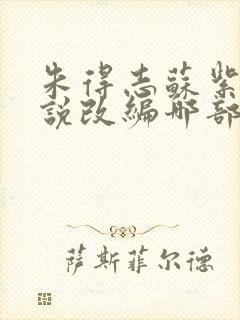 朱得志蘇紫
說改編那部
萨斯菲尔德